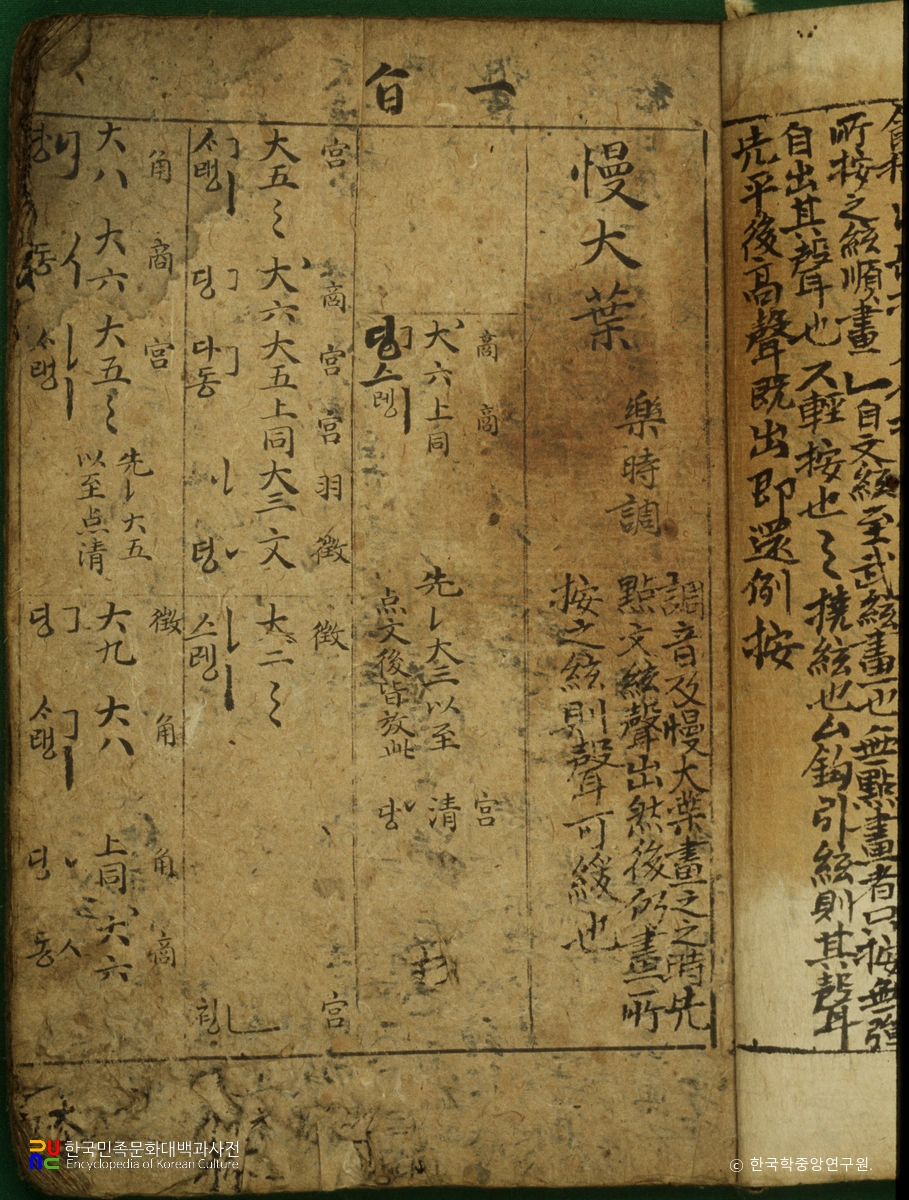 所按之絃順畫乚自文絃至武絃畫一也無點畫者只按無彈
自出其聲也ス輕按也〻撓絃也厶鉤引絃則其聲
先平後高聲既出即還例按
一 㫖
慢大葉 樂時調
調音及慢大葉畫之之時先
點文絃聲出然後仍畫所
按之絃則聲可緩也
商 商 宮
大六上同 先乚大三以至
点文後皆放此
清
덩 스렝 당
宮 商 宮 宮 羽 徵 徵 宮
大五〻 大六大五上同大三文 大二〻
ᄉᆞ랭 덩 다동 덩 스렝 힁
角 商 宮 徵 角 角 商
大八 大六 大五〻 先乚大五
以至点清
大九 大八 上同 大六
동 ᄉᆞ랭 덩 ᄉᆞ랭 당 동
한국민족문화대백과사전
Encyclopedia of Korean Culture
© 한국학중앙연구원.